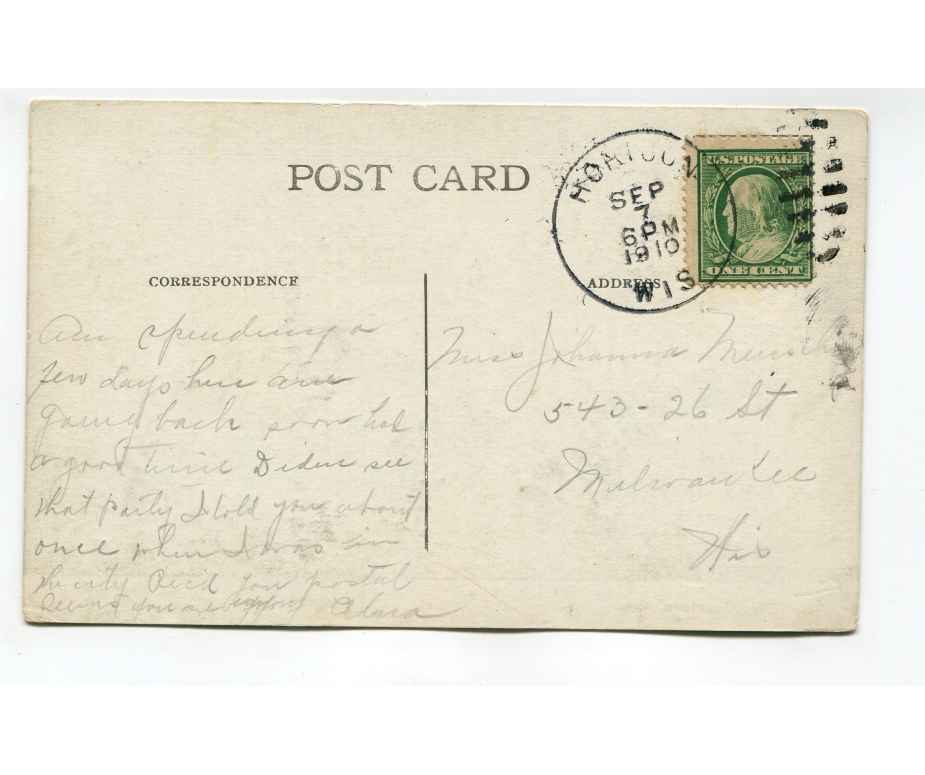 POST CARD
HORICON
SEP
7
6 PM
1910
WIS
U.S. POSTAGE
ONE CENT
CORRESPONDENCE
ADDRESS
Am spending a
few days here are
going back soon had
a good time Diden see
that party I told you about
once when I was in
the city Recd your postal
Clara
Miss Johanna
543-26 St
Milwaukee
Wis